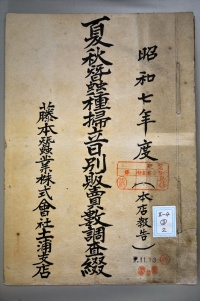 昭和七年度(本店報告)
夏秋蚕種掃立日別販賣数調査綴
藤本蚕業株式會社土浦支店